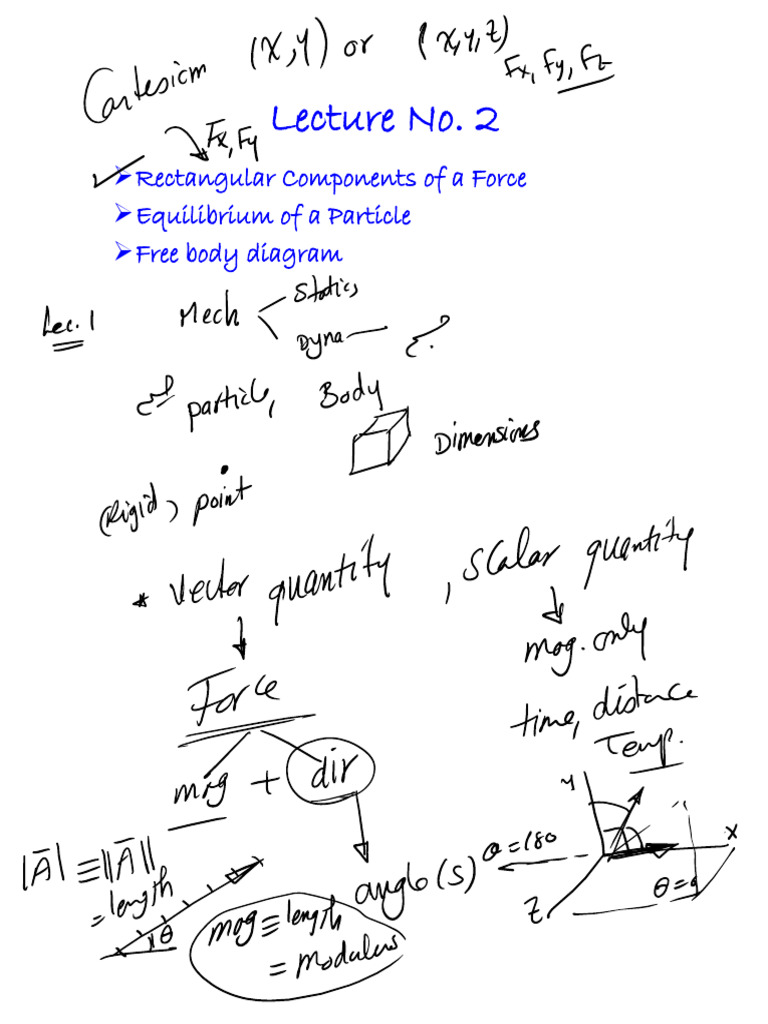 Cartesian (x,y) or (x,y,z)
Fx, Fy, Fz
Lecture No. 2
Fx, Fy
Rectangular Components of a Force
Equilibrium of a Particle
Free body diagram
Lec. 1
Mech
Statics
Dyna
particle, Body
Dimensions
(Rigid) point
* Vector quantity, Scalar quantity
Force
mag. only
time, distance
Temp.
mag + dir
|Ā| ≡ ||Ā||
= length
θ
mag ≡ length
= Modulus
angle(s)
θ=180
y
x
z
θ=0